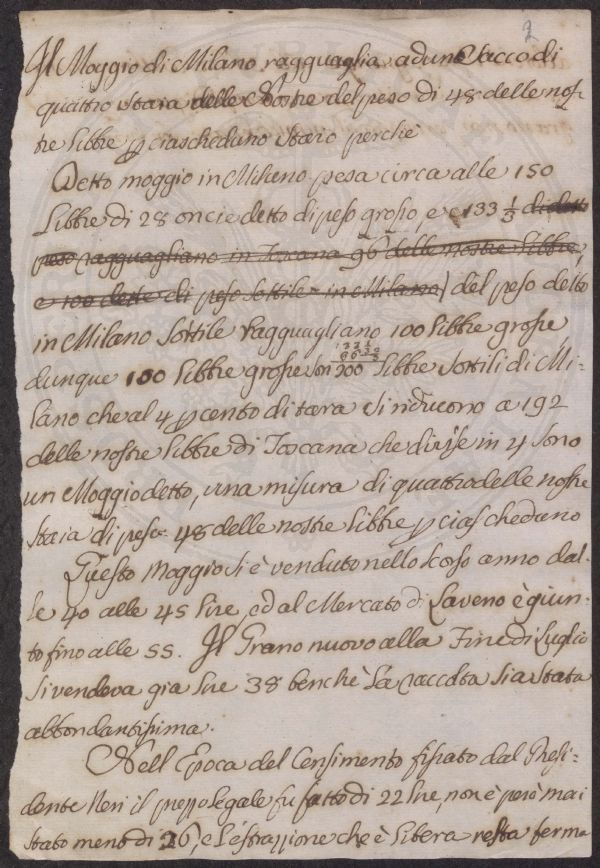 2
Il Moggio di Milano ragguaglia ad uno Sacco di
quattro Staia delle Nostre del peso di 48 delle nos-
tre libbre p ciascheduno Staro perchè
Detto moggio in Milano pesa circa alle 150
Libbre di 28 oncie detto di peso grosso, e 133 1/3 di detto
peso ragguagliano in Toscana 96 delle nostre libbre,
e 100 dette di peso sottile in Milano) del peso detto
in Milano Sottile Ragguagliano 100 libbre grosse
dunque 150 libbre grosse son 200 libbre Sottili di Mi-
lano che al 4 p cento di tara si riducono a 192
delle nostre libbre di Toscana che divise in 4 sono
un Moggio detto, una misura di quattro delle nostre
staia di peso 48 delle nostre libbre p ciascheduno
Questo Moggio si è venduto nello scorso anno dal-
le 40 alle 45 lire, ed al Mercato di Laveno è giun-
to fino alle 55. Il Grano nuovo alla Fine di Luglio
si vendeva gia lire 38 benchè la raccolta sia stata
abbondantissima.
Nell Epoca del Censimento fissato dal Presi-
dente Neri il prezzo legale fu fatto di 22 lire, non è però mai
stato meno di 26, e l'estrazzione che è libera resta ferma